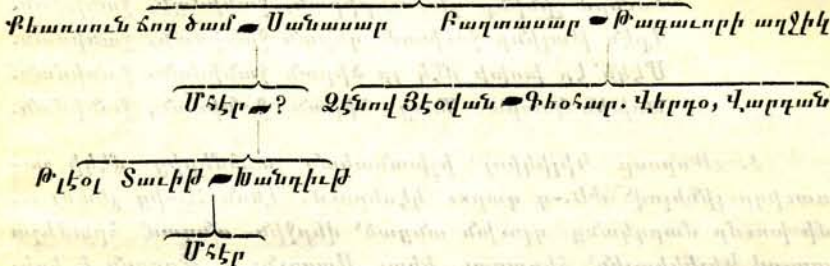 Քեառսուն ճող ծամ — Սանասար Բաղտասար — Թագաւորի աղջիկ
Մհէր — ? Զէնով Յէօվան — Գիօհար. Վերգօ, Վարդան
Թլէօլ Տաւիթ — Խանդութ
Մհէր